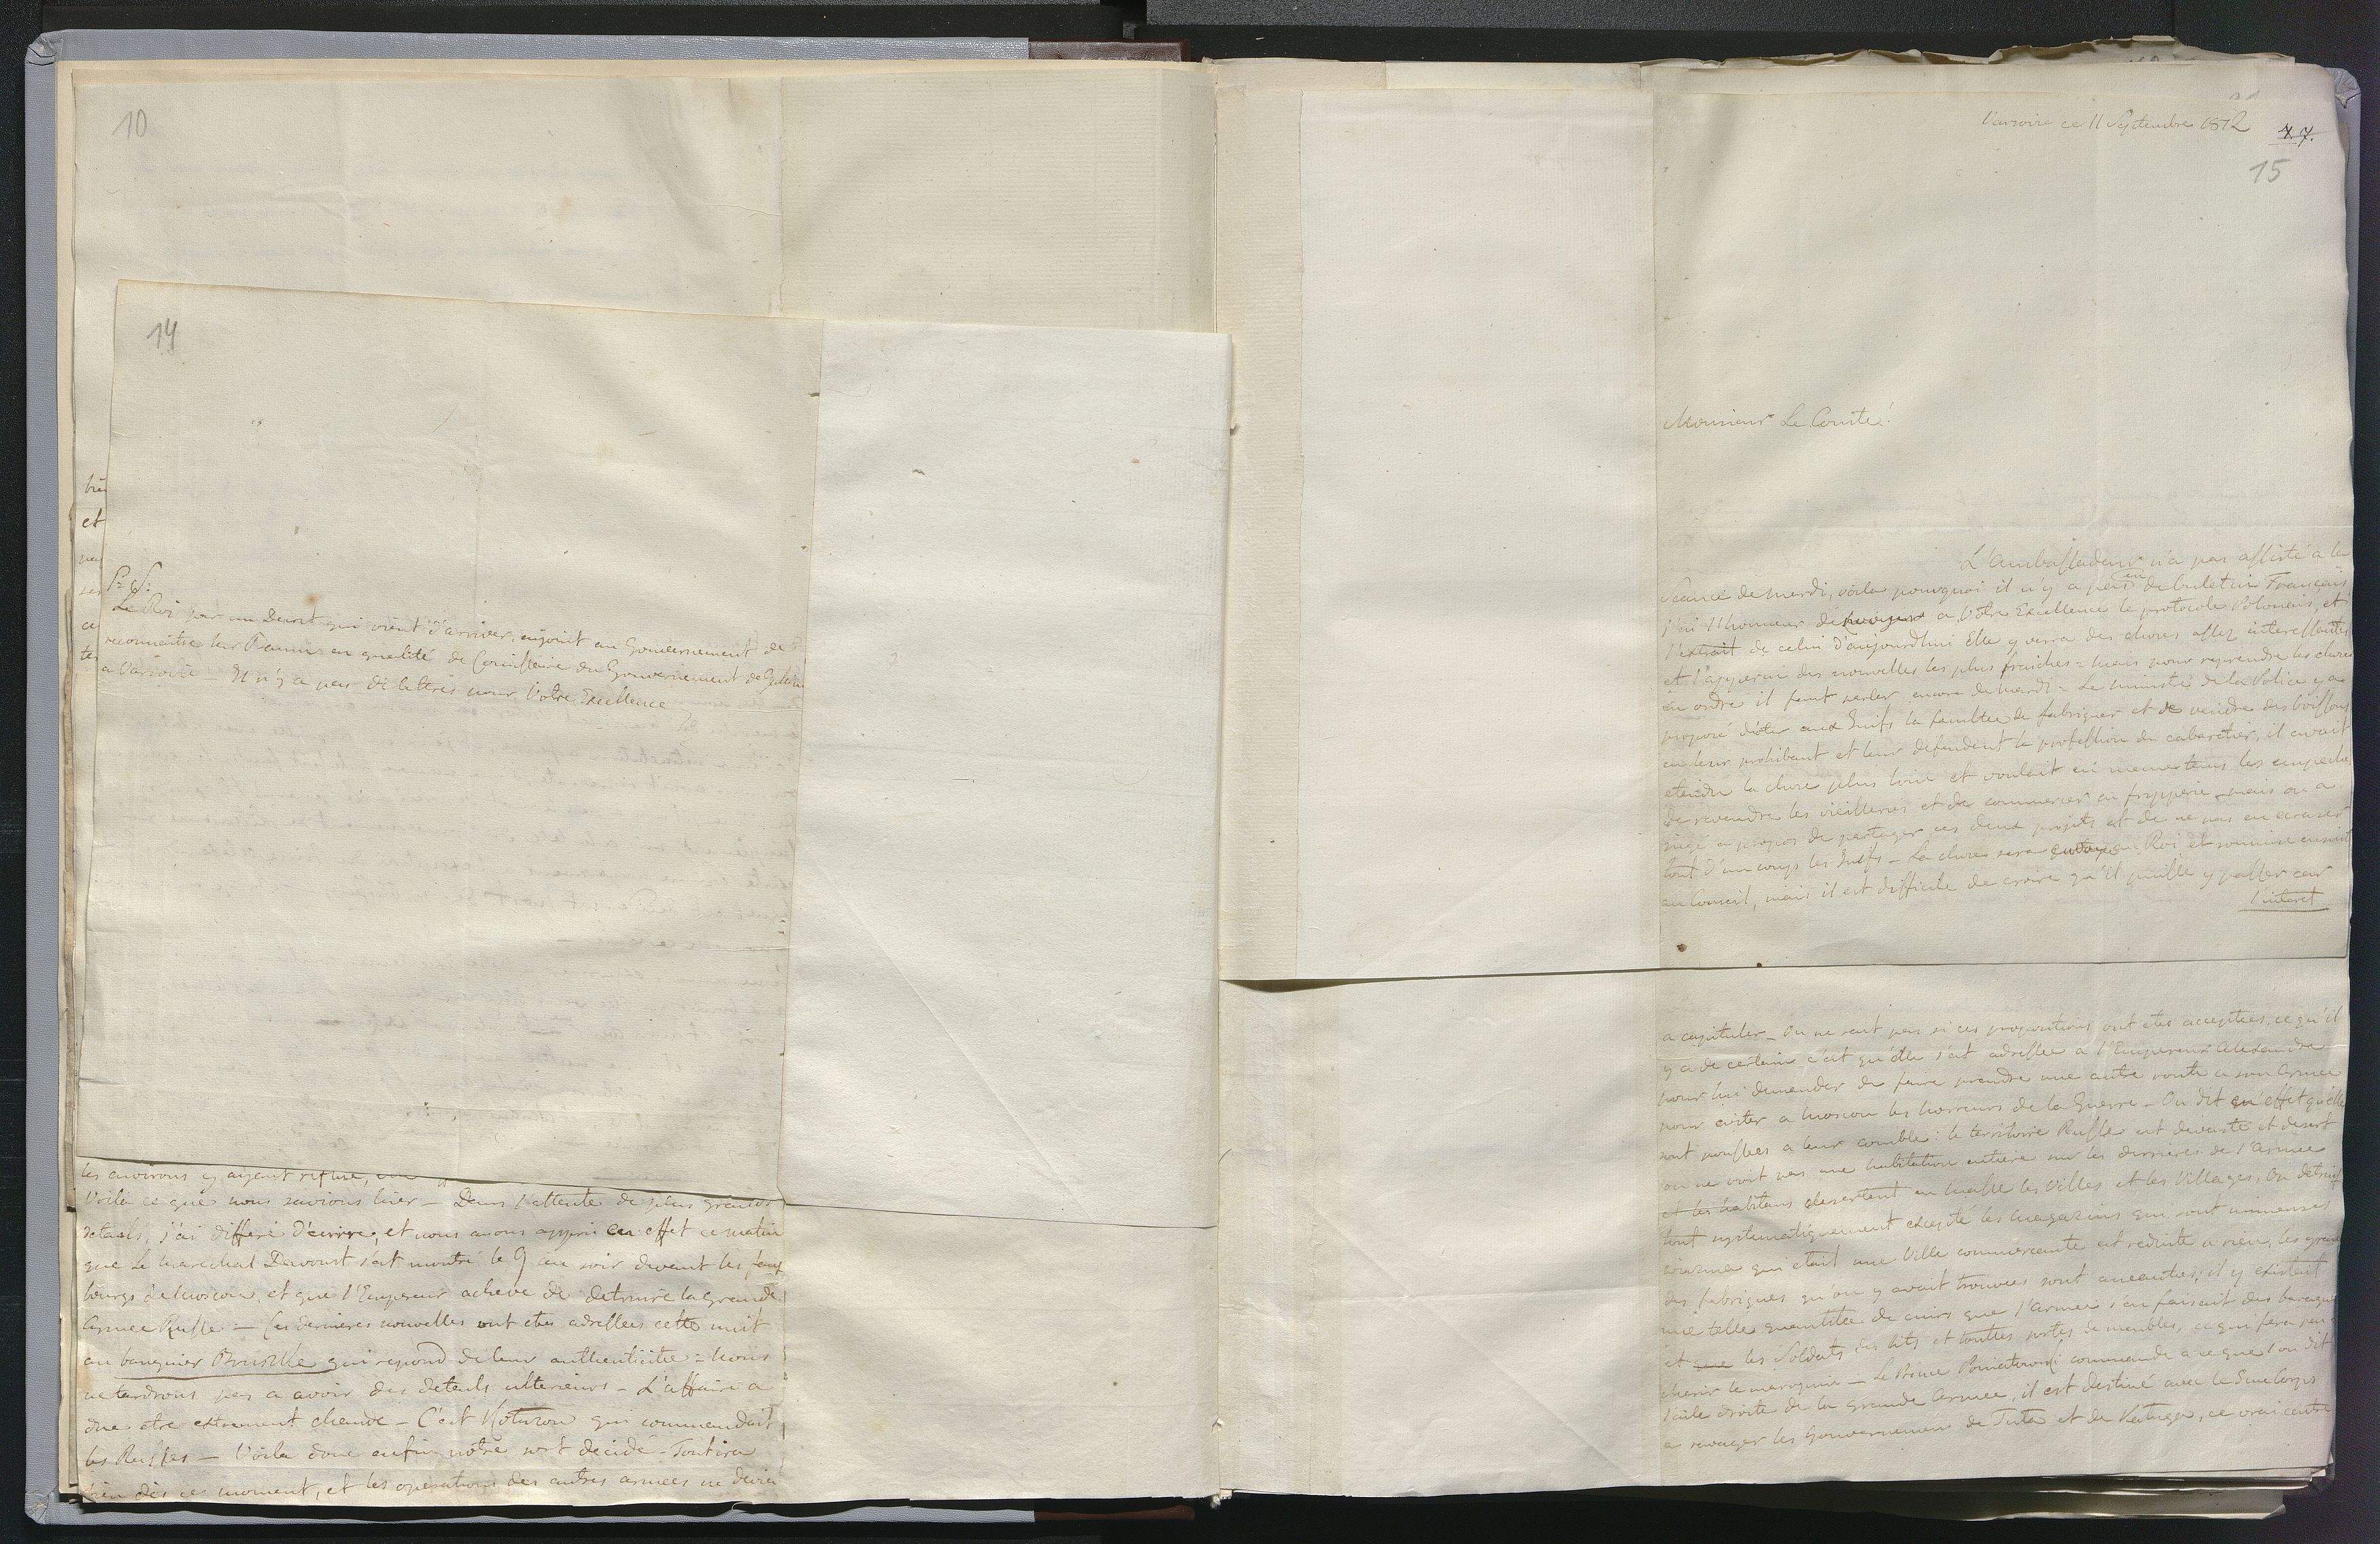 10
14
P: S:
Le Roi par un Decret qui vient d'arriver, enjoint au Gouvernement de
reconnaitre en qualité de du Gouvernement de
a Varsovie — Il n'y a pas de lettres pour Votre Excellence
et
ce
les environs y ayant
Voila ce que nous savions hier — Dans l'attente de plus grands
details, j'ai differé d'ecrire, et nous avons appris en effet ce matin
que le Marechal Davoust s'est montré le 9 au soir devant les faux
bourgs de Moscou, et que l'Empereur acheve de detruire la grande
Armée Russe — Ces dernieres nouvelles ont etes adressees cette nuit
au banquier qui repond de leur authenticite = Nous
ne tardrons pas a avoir des details ulterieurs — L'affaire a
due etre chaude — C'est Kotuzow qui commendait
les Russes — Voila donc enfin notre sort decidé — Tout ira
bien dès ce moment, et les operations des autres armées ne
Varsovie ce 11 Septembre 1812
7.
15
Monsieur Le Comte!
L'Ambassadeur n'a pas assisté a la
Seance de Mardi, voila pourquoi il n'y a pas eu de buletin Français
j'ai l'honneur d'envoyer a Votre Excellence le protocole Polonais, et
l'extrait de celui d'aujourdhui Elle y verra des choses assez interessantes
et l'apperçu des nouvelles les plus fraiches = Mais pour reprendre les choses
en ordre il faut parler encore de Mardi = Le Ministre de la Police y a
proposé d'oter aux Juifs la facultée de fabriquer et de vendre des boissons
en leur prohibant et leur defendent la profession de cabaretier, il avait
etendu la chose plus loin et voulait en meme tems les empeche
de revendre les vieilleries et de commercer en fripperie mais on a
jugé a propos de partager ces deux projets et de ne pas en ecraser
tout d'un coup les Juifs — La chose sera au Roi et soumise ensuite
au Conseil, mais il est difficile de croire qu'il puisse y passer car
l'interet
a capituler — On ne sait pas si ces propositions ont etes acceptées, ce qu'il
y a de certain c'est qu'elle s'est adressée a l'Empereur Alexandre
pour lui demander de faire prendre une autre route a son Armée
pour eviter a Moscou les horreurs de la Guerre — On dit en effet qu'elles
sont poussees a leur comble: le territoire Russe est devasté et desert
on ne voit pas une habitation entiere sur les derrieres de l'Armée
et les habitans desertent en Masse les Villes et les Villages, On detruit
tout systematiquement excepté les Magazins qui sont immenses
qui etait une Ville commercante est reduite a rien, les grandes
des fabriques qu'on y avait trouvees sont aneanties; il y existait
une telle quantitée de cuirs que l'Armée s'en faisait des baraques
et les Soldats des lits et touttes sortes de meubles, ce qui fera ren
cherir le maroquin — Le Prince Poniatowski commande a ce que l'on dit
l'aile droite de la grande Armée, il est destiné avec le 5me Corps
a ravager les Gouvernemens de Tula et de Kaluga, ce vrai centre